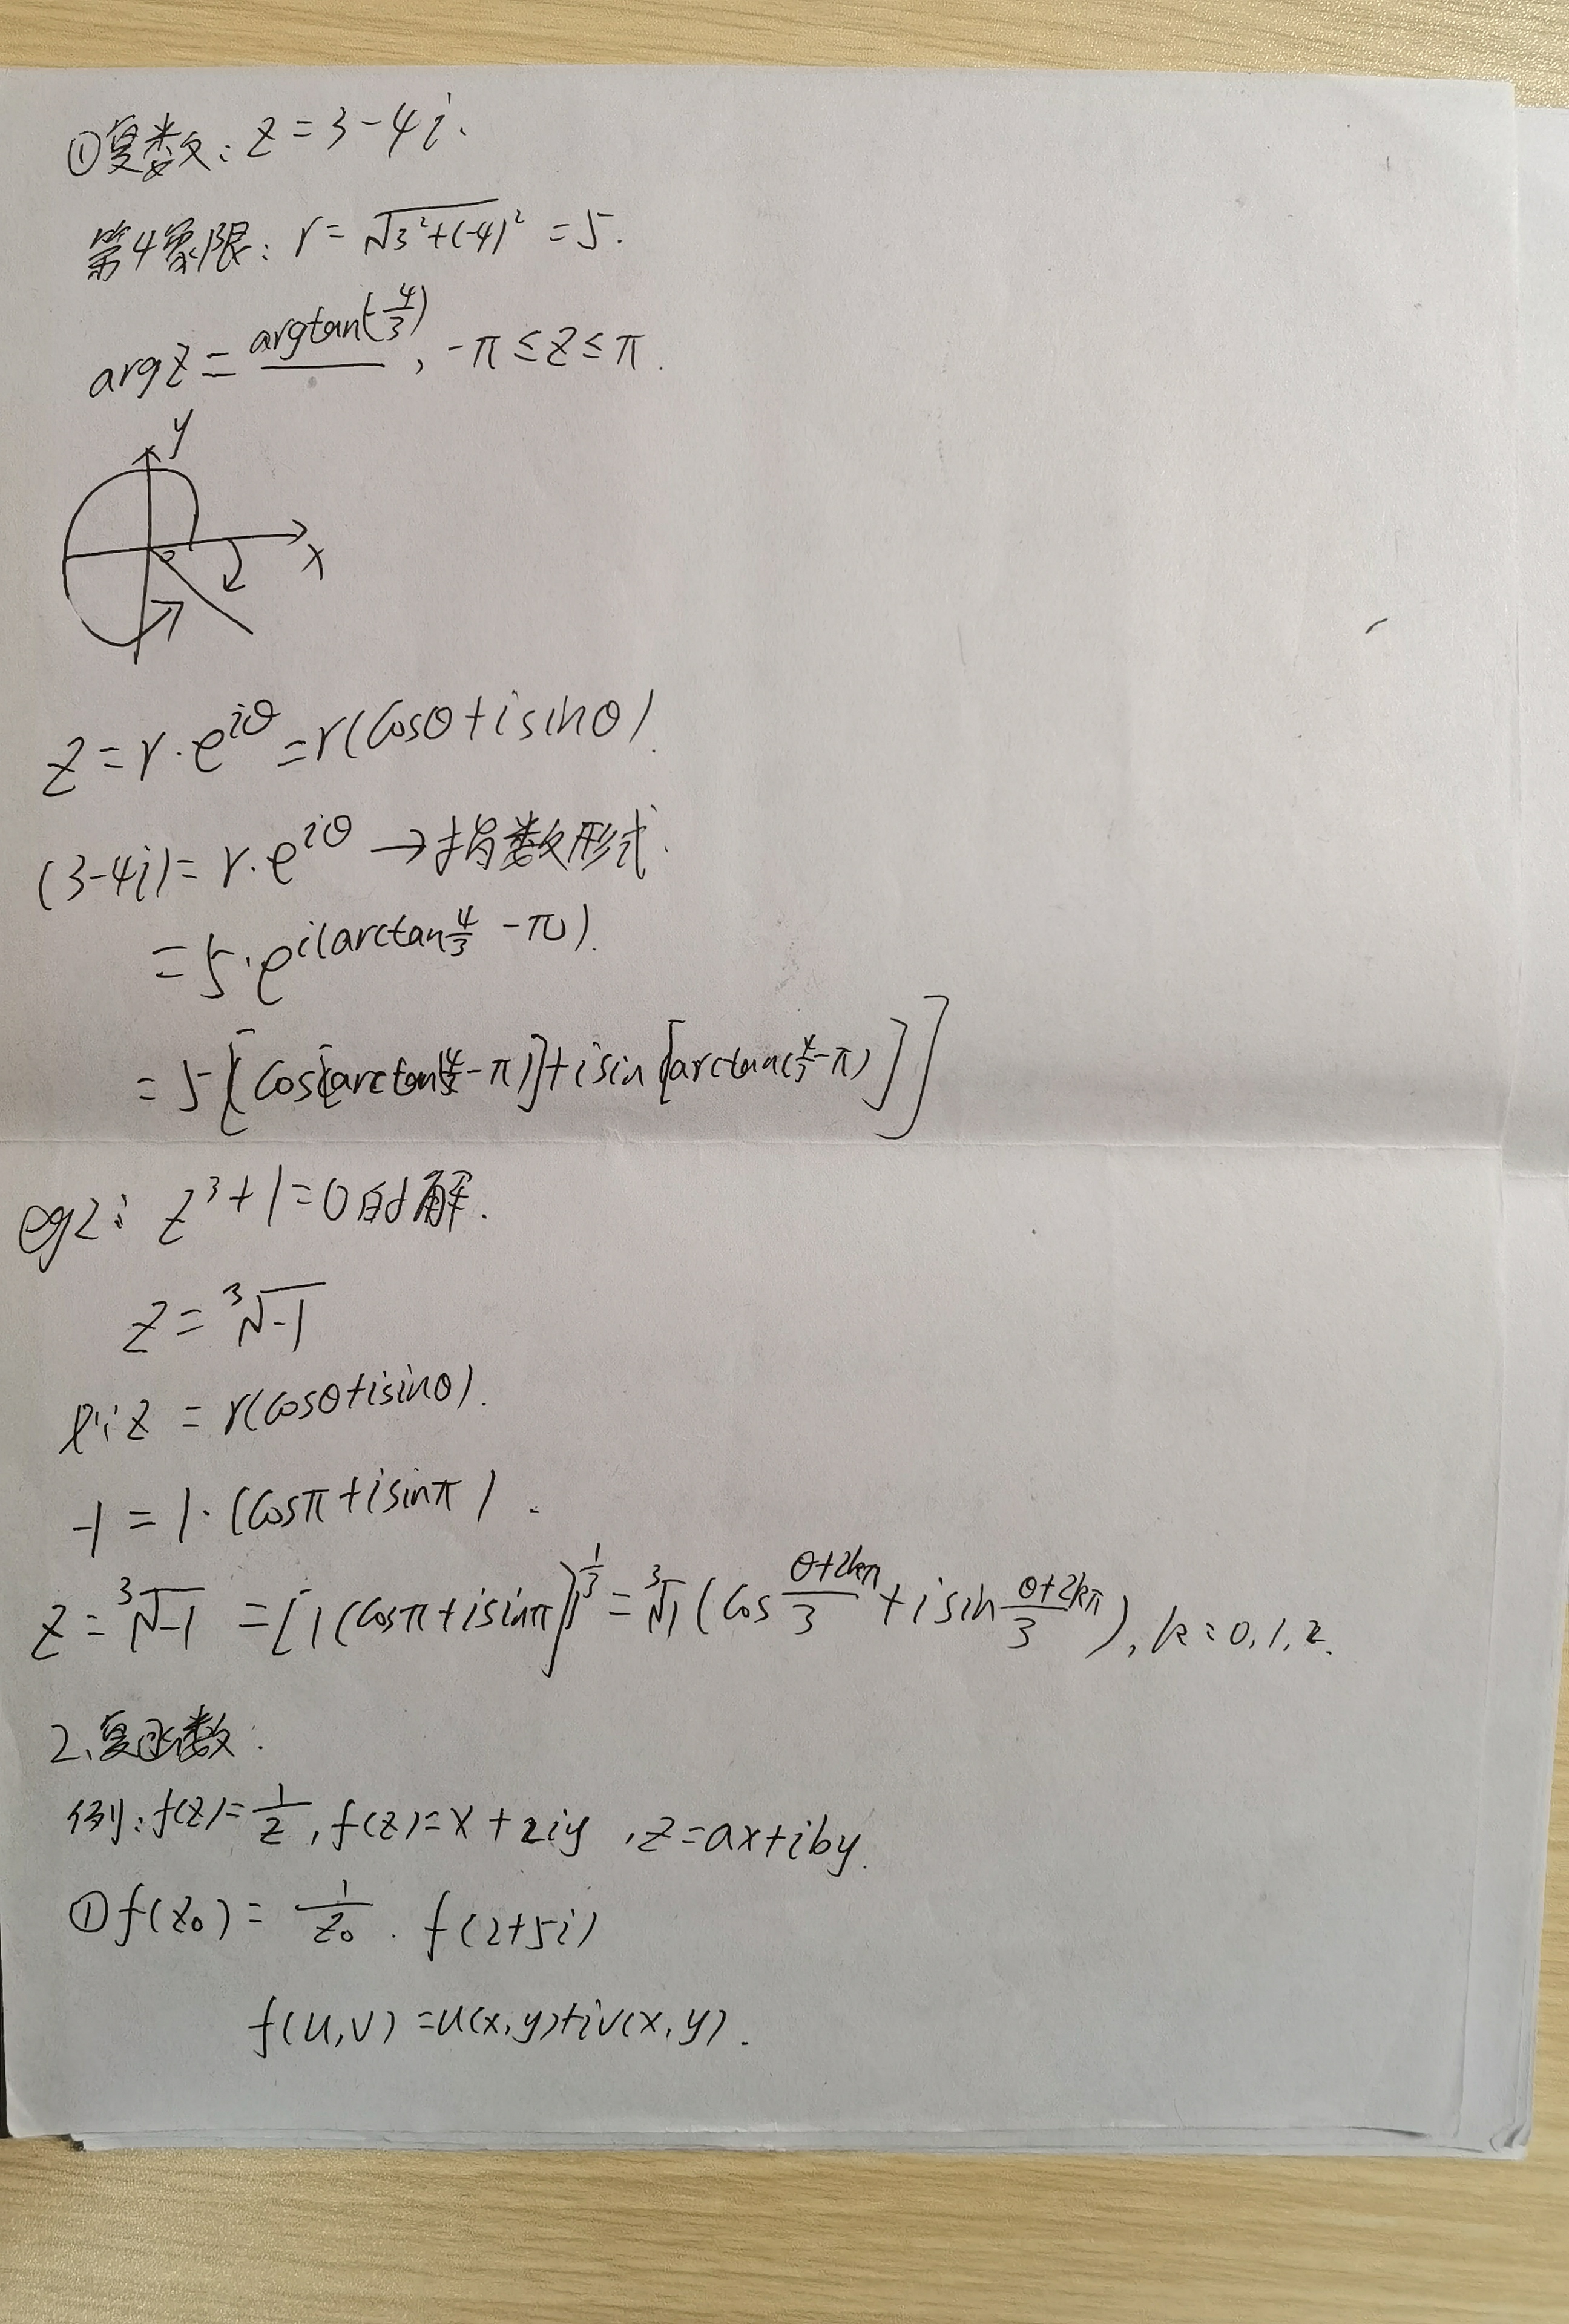 ①复数: z=3-4i.
第4象限: r=√(3²+(-4)²) =5.
argz= argtan(-4/3), -π≤z≤π.
y
x
z=r·e^{iθ}=r(cosθ+isinθ).
(3-4i)=r·e^{iθ}→指数形式.
=5·e^{i(arctan4/3 -π)}.
=5[cos[arctan(4/3-π)]+isin[arctan(4/3-π)]]
eg2: z³+1=0的解.
z=³√-1
z=r(cosθ+isinθ).
-1=1·(cosπ+isinπ).
z=³√-1=[1(cosπ+isinπ)]^{1/3}=³√1(cos (θ+2kπ)/3+isin (θ+2kπ)/3), k=0,1,2.
2、复函数:
例: f(z)=1/z, f(z)=x+2iy, z=ax+iby.
①f(z₀)=1/z₀. f(2+5i)
f(u,v)=u(x,y)+iv(x,y).